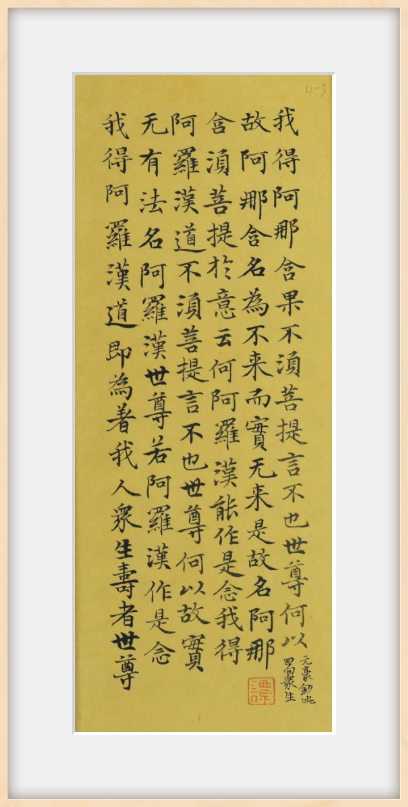 我得阿那含果不湏菩提言不也世尊何以
故阿那含名為不来而實无来是故名阿那
含湏菩提於意云何阿羅漢能作是念我得
阿羅漢道不湏菩提言不也世尊何以故實
无有法名阿羅漢世尊若阿羅漢作是念
我得阿羅漢道即為著我人衆生壽者世尊
衆生